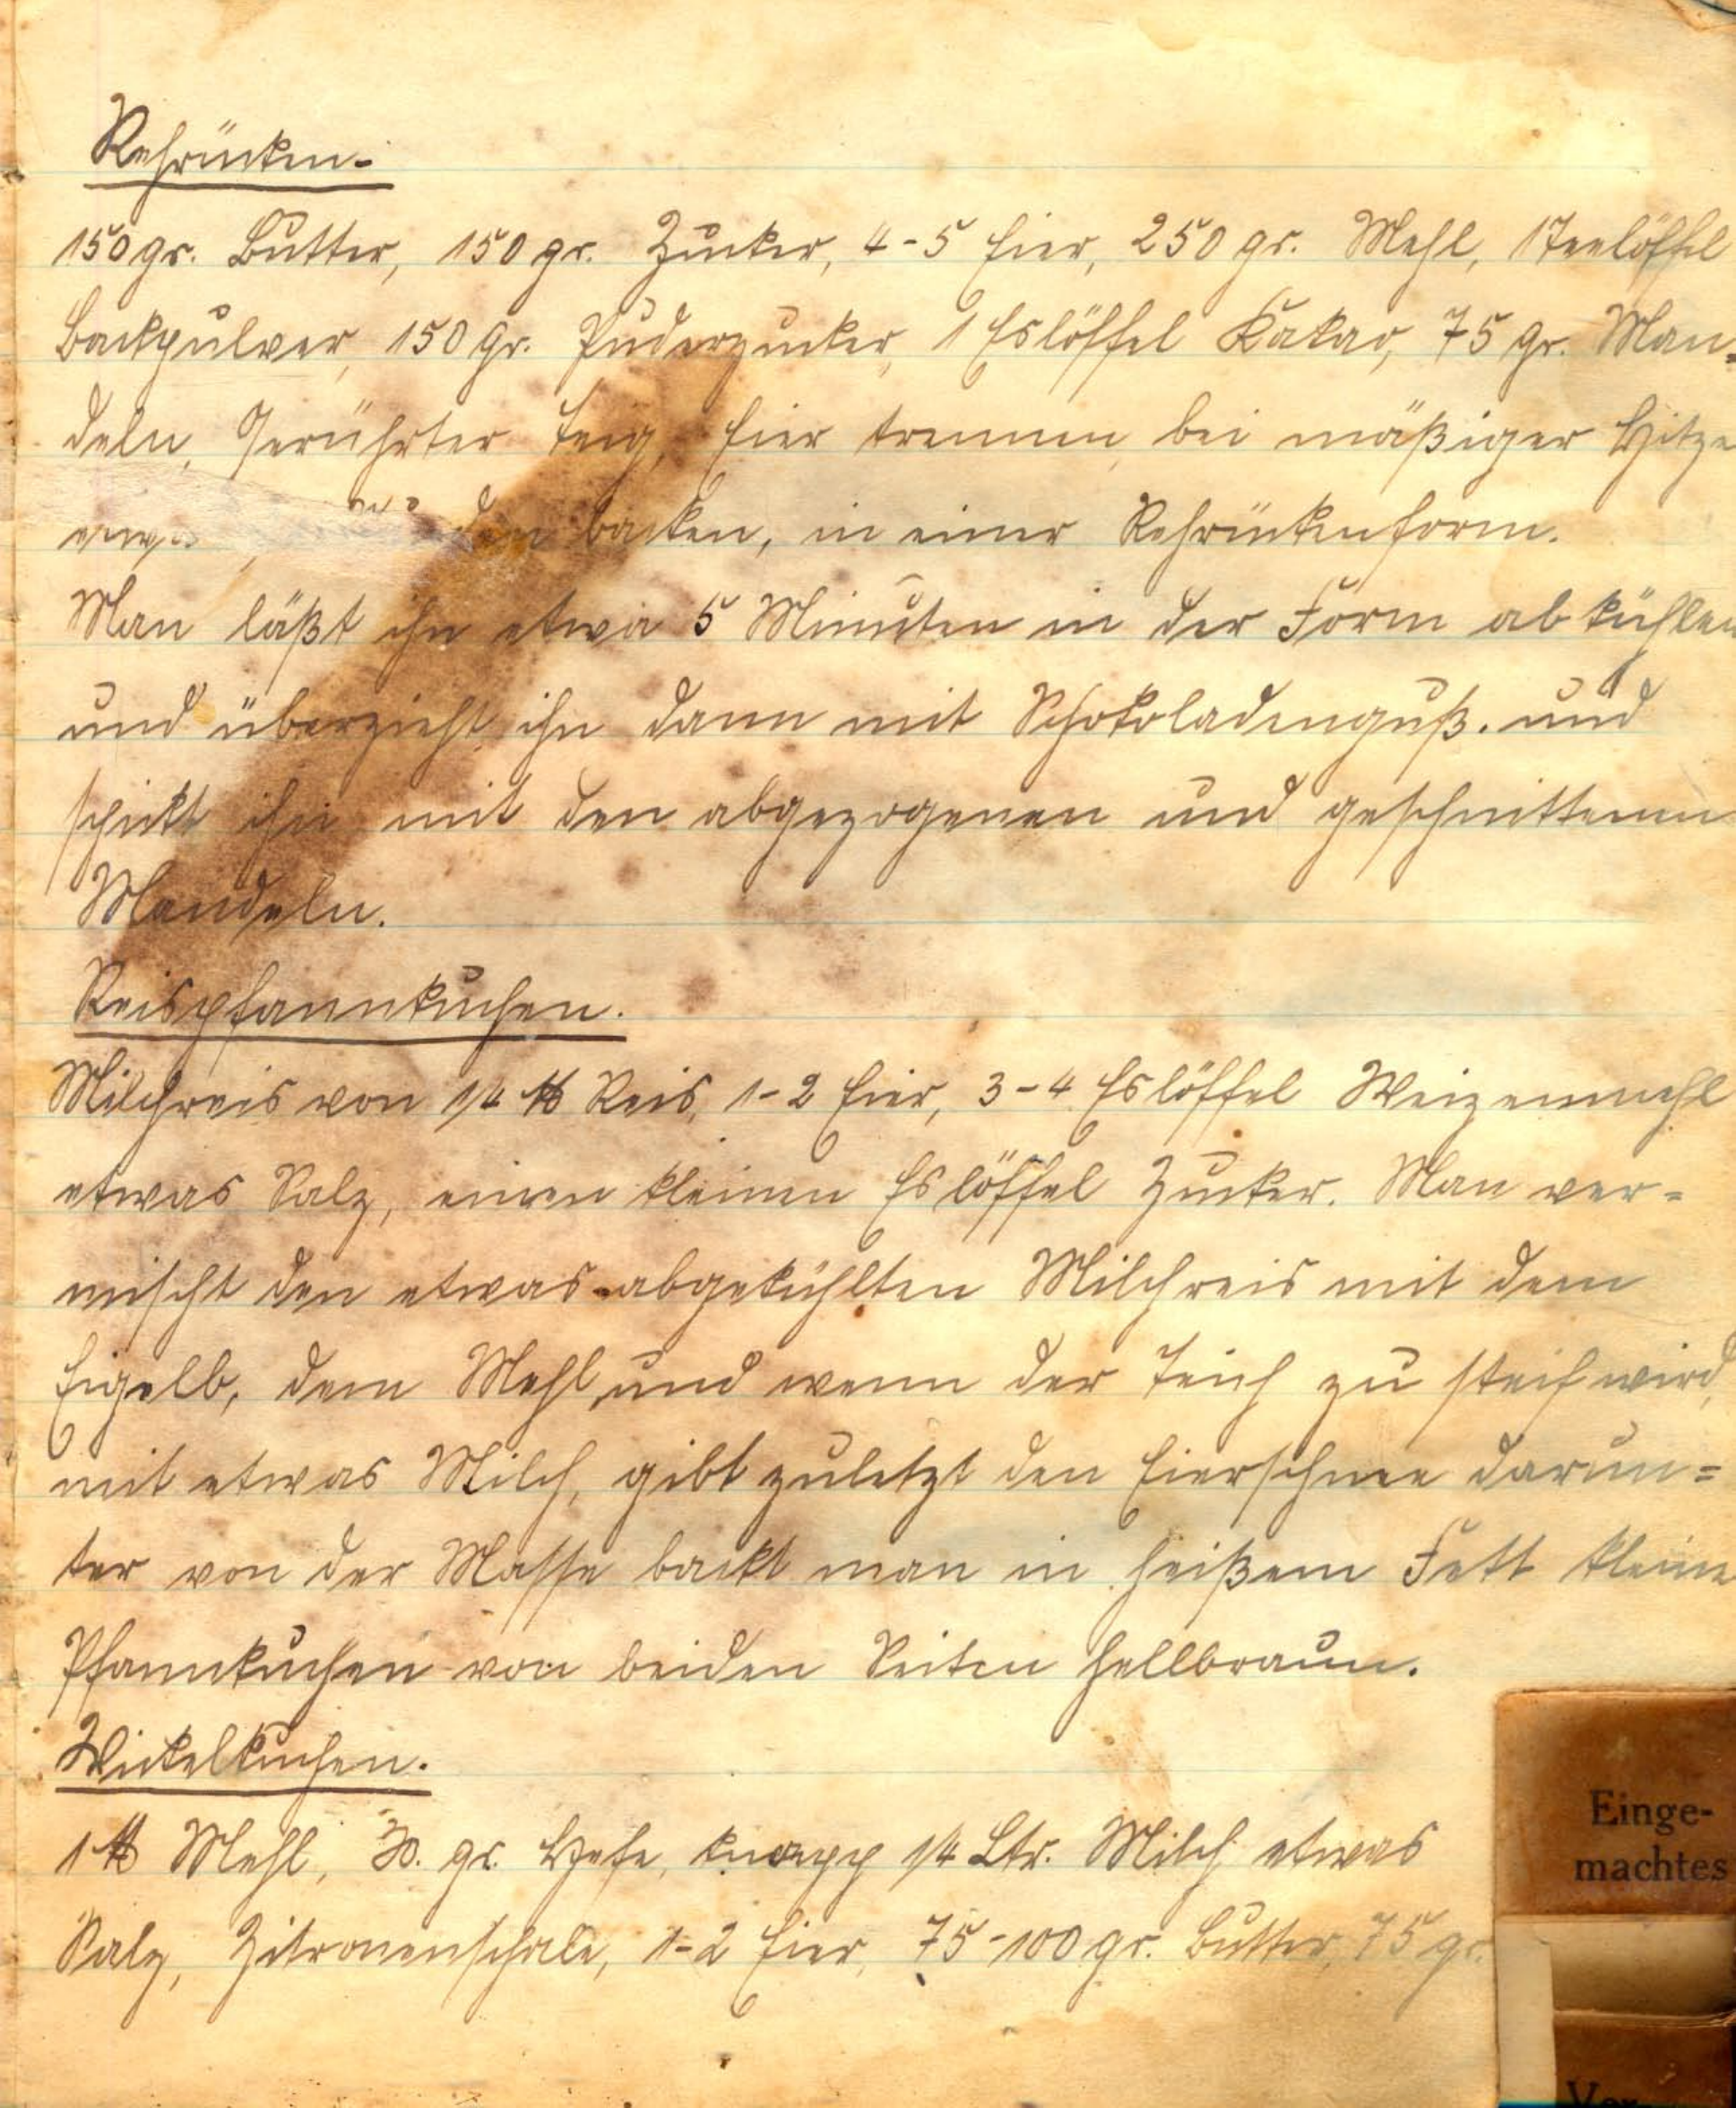 Rehrücken.
150 gr. Butter, 150 gr. Zucker, 4-5 Eier, 250 gr. Mehl, 1 Teelöffel
Backpulver, 150 gr. Puderzucker, 1 Eslöffel Kakao, 75 gr. Man=
deln, Gerührter Teig, Eier trennen, bei mäßiger Hitze
backen, in einer Rehrückenform.
Man läßt ihn etwa 5 Minuten in der Form abkühlen
und überzieht ihn dann mit Schokoladenguß. und
spickt ihn mit den abgezogenen und geschnittenen
Mandeln.
Reispfannkuchen.
Milchreis von 1/4 ℔ Reis, 1-2 Eier, 3-4 Eslöffel Weizenmehl
etwas Salz, einen kleinen Eslöffel Zucker. Man ver=
mischt den etwas abgekühlten Milchreis mit dem
Eigelb, dem Mehl und wenn der Teich zu steif wird,
mit etwas Milch, gibt zuletzt den Eierschnee darun=
ter von der Masse backt man in heißem Fett kleine
Pfannkuchen von beiden Seiten hellbraun.
Wickelkuchen.
1 ℔ Mehl, 30. gr. Hefe, knapp 1/4 Ltr. Milch etwas
Salz, Zitronenschale, 1-2 Eier, 75-100 gr. Butter, 75 gr.
Einge-
machtes